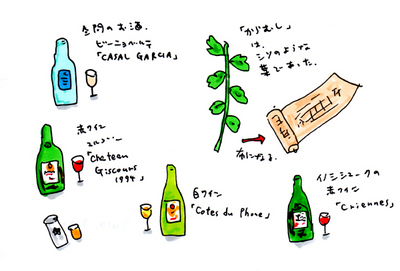 のお酒.
ビーニョベルデ
「CASAL GARCIA」
「からむし」
は、
シソのような
葉であった.
布になる.
赤ワイン
マルゴー
「Chateau
Giscours
1994」
白ワイン
「Cotes du Phone」
イノシシマークの
赤ワイン